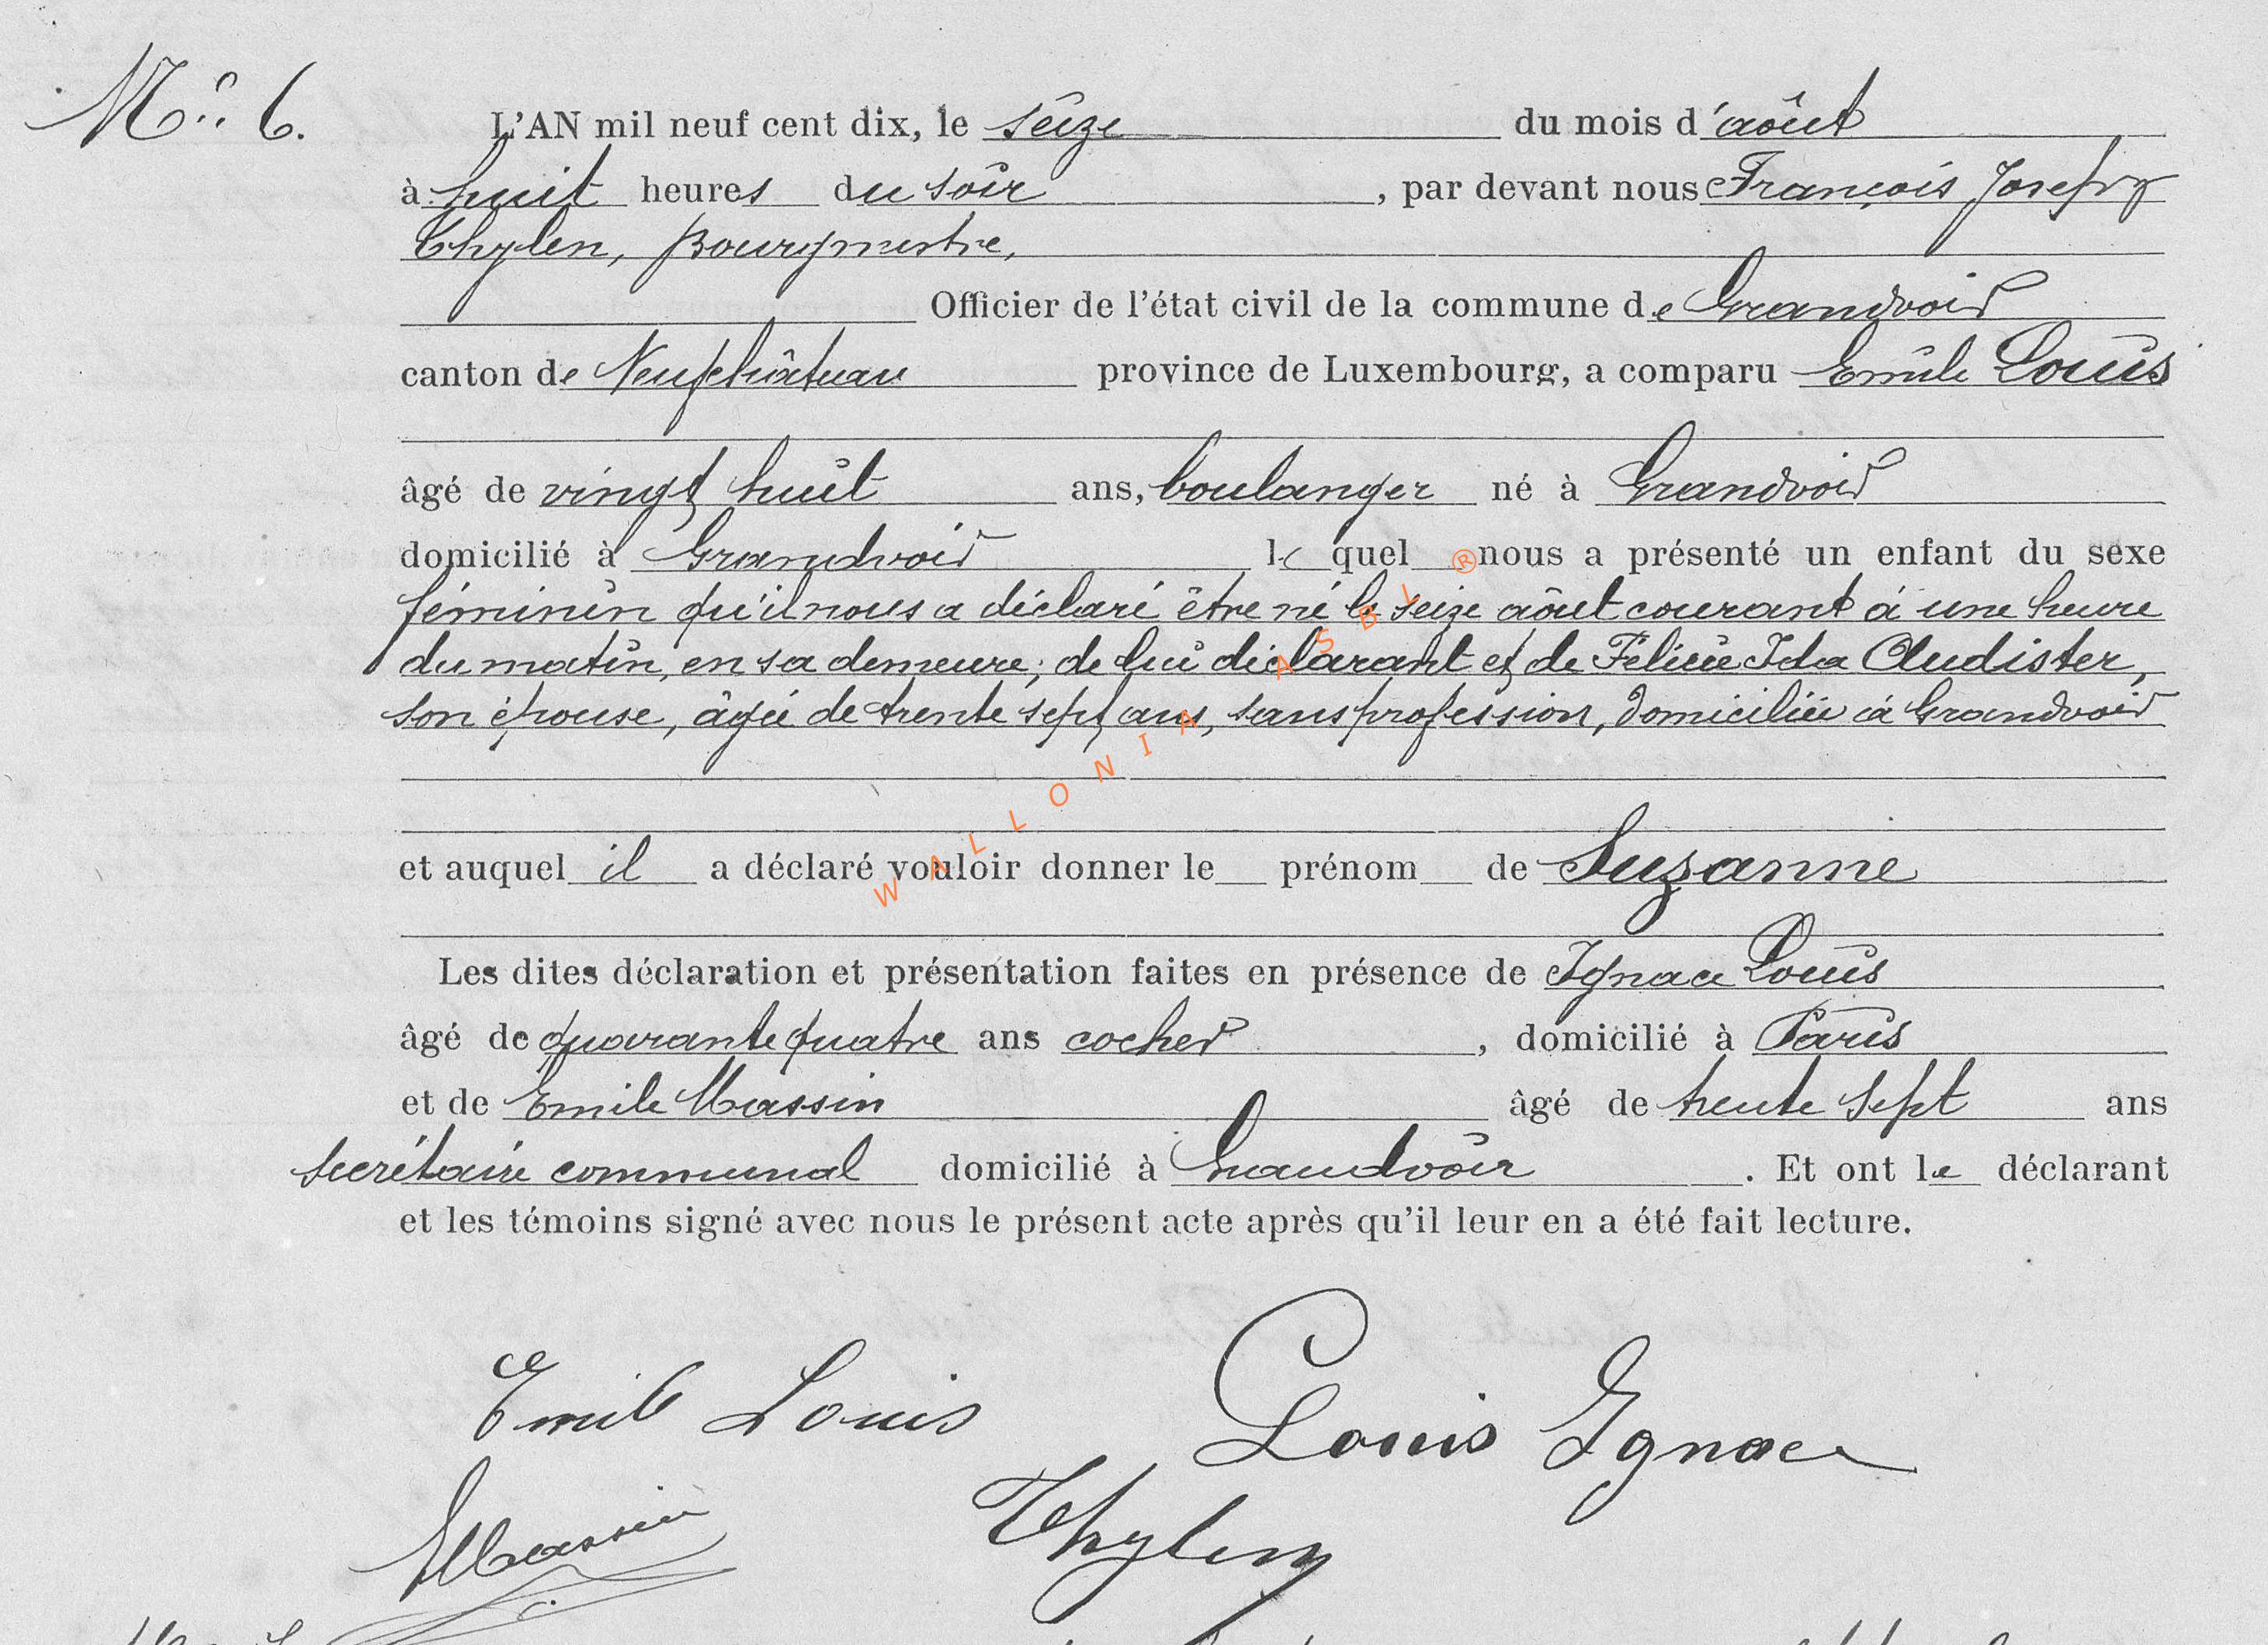 N° 6.
L'AN mil neuf cent dix, le seize du mois d'août
à huit heures du soir, par devant nous François Joseph
Thylen, Bourgmestre,
Officier de l'état civil de la commune de Grandvoir
canton de Neufchâteau province de Luxembourg, a comparu Emile Louis
âgé de vingt huit ans, boulanger né à Grandvoir
domicilié à Grandvoir lequel nous a présenté un enfant du sexe
féminin qu'il nous a déclaré être né le seize août courant à une heure
du matin, en sa demeure; de lui déclarant et de Félicie Ida Audister,
son épouse, âgée de trente sept ans, sans profession, domiciliée à Grandvoir
et auquel il a déclaré vouloir donner le prénom de Suzanne
Les dites déclaration et présentation faites en présence de Ignace Louis
âgé de quarante quatre ans cocher, domicilié à Paris
et de Emile Massin âgé de trente sept ans
secrétaire communal domicilié à Grandvoir. Et ont le déclarant
et les témoins signé avec nous le présent acte après qu'il leur en a été fait lecture.
Emile Louis Louis Ignace
EMassin Thylen
WALLONIA ASBL ®